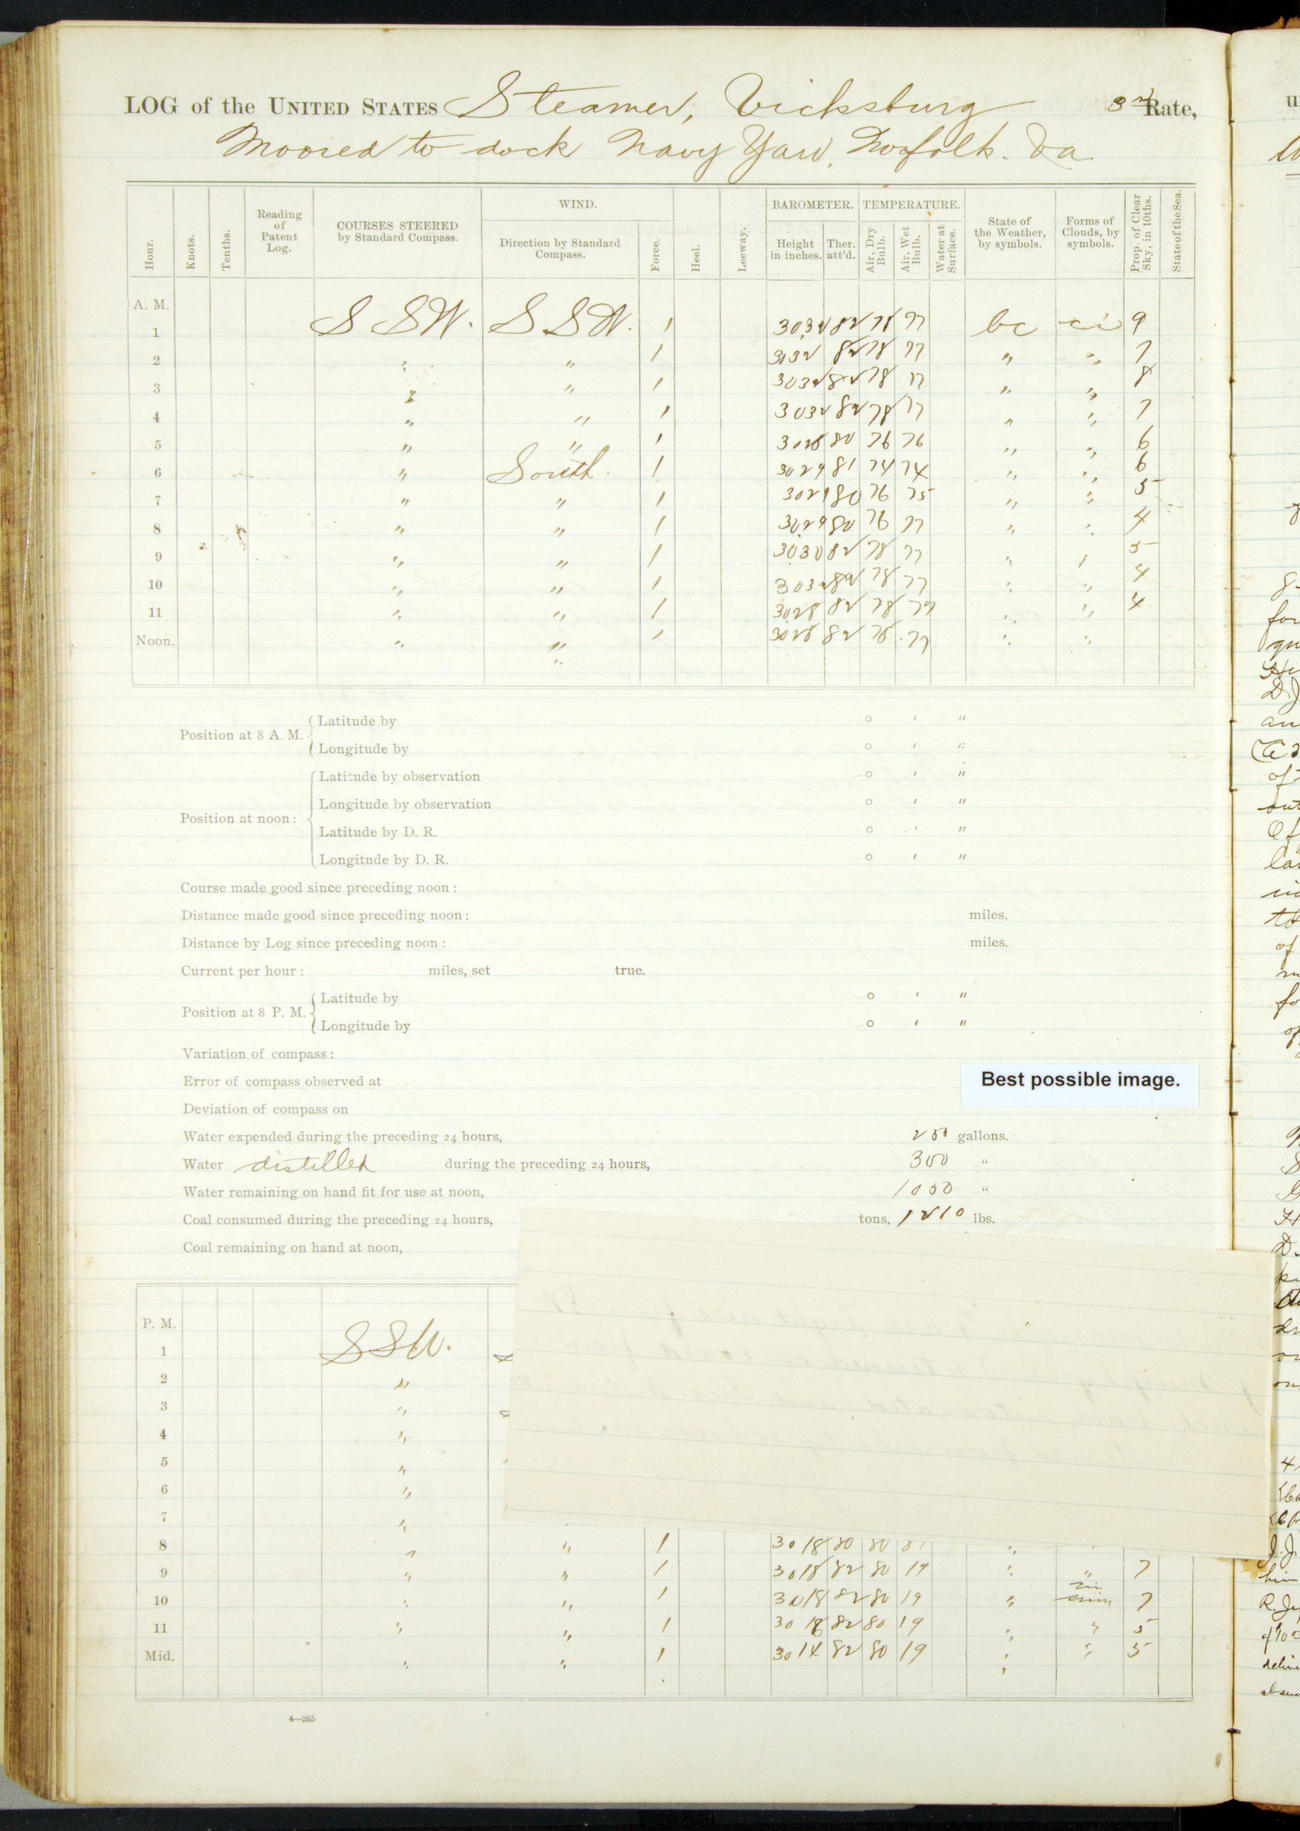 LOG of the UNITED STATES Steamer, Vicksburg 3rd Rate,
Moored to dock Navy Yard, Norfolk. Va.
Hour. Knots. Tenths. Reading of Patent Log. COURSES STEERED by Standard Compass. WIND. Direction by Standard Compass. Force. Heel. Leeway. BAROMETER. Height in inches. Ther. att'd. TEMPERATURE. Air, Dry Bulb. Air, Wet Bulb. Water at Surface. State of the Weather, by symbols. Forms of Clouds, by symbols. Prop. of Clear Sky, in 10ths. State of the Sea.
A. M.
1 SSW. SSW. 1 3032 82 78 77 bc ci 9
2 " " 1 3032 82 78 77 " " 7
3 " " 1 3032 82 78 77 " " 8
4 " " 1 3032 82 78 77 " " 7
5 " " 1 3028 80 76 76 " " 6
6 " South. 1 3029 81 74 74 " " 6
7 " " 1 3029 80 76 75 " " 5
8 " " 1 3029 80 76 77 " " 4
9 " " 1 3030 82 78 77 " " 5
10 " " 1 3032 82 78 77 " " 4
11 " " 1 3028 82 78 77 " " 4
Noon. " " 1 3028 82 78 77 " "
Position at 8 A. M. Latitude by ° ' "
Longitude by ° ' "
Position at noon: Latitude by observation ° ' "
Longitude by observation ° ' "
Latitude by D. R. ° ' "
Longitude by D. R. ° ' "
Course made good since preceding noon:
Distance made good since preceding noon: miles.
Distance by Log since preceding noon: miles.
Current per hour: miles, set true.
Position at 8 P. M. Latitude by ° ' "
Longitude by ° ' "
Variation of compass:
Best possible image.
Error of compass observed at
Deviation of compass on
Water expended during the preceding 24 hours, 250 gallons.
Water distilled during the preceding 24 hours, 300 "
Water remaining on hand fit for use at noon, 1050 "
Coal consumed during the preceding 24 hours, tons, 1210 lbs.
Coal remaining on hand at noon,
P. M.
1 SSW.
2 "
3 "
4 "
5 "
6 "
7 "
8 " " 1 3018 80 80 "
9 " " 1 3018 82 80 79 " " 7
10 " " 1 3018 82 80 79 " 7
11 " " 1 30 82 80 79 " " 5
Mid. " " 1 3014 82 80 79 " " 5
4—265